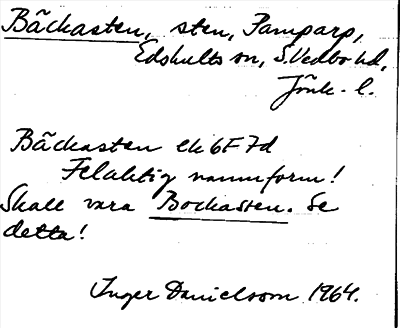 Bäckasten, sten, Pamparp,
Edshults sn, S. Vedbo hd,
Jönk. l.
Bäckasten ek 6F7d
Felaktig namnform!
Skall vara Bockasten. Se
detta!
Inger Danielsson 1964.